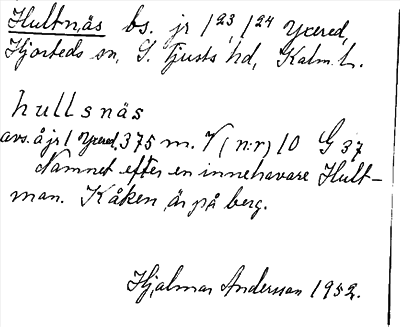 Hultnäs bs. jr 1²³, 1²⁴ Yxered,
Hjorteds sn, S. Tjusts hd, Kalm. L.
hullsnäs
avs. å jr 1 Yxered. 375 m. V (n:r) 10 G 37
Namnet efter en innehavare Hult-
man. Kåken är på berg.
Hjalmar Andersson 1952.